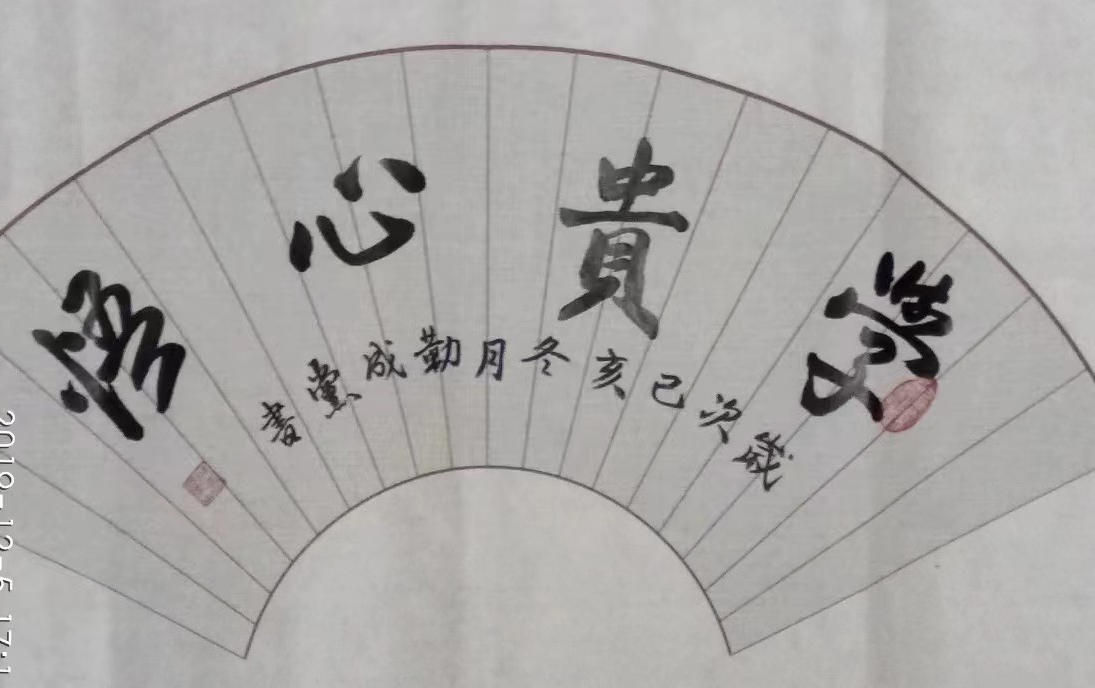 學貴心悟
歲次己亥冬月勤成黨書
2019-12-5 17:1